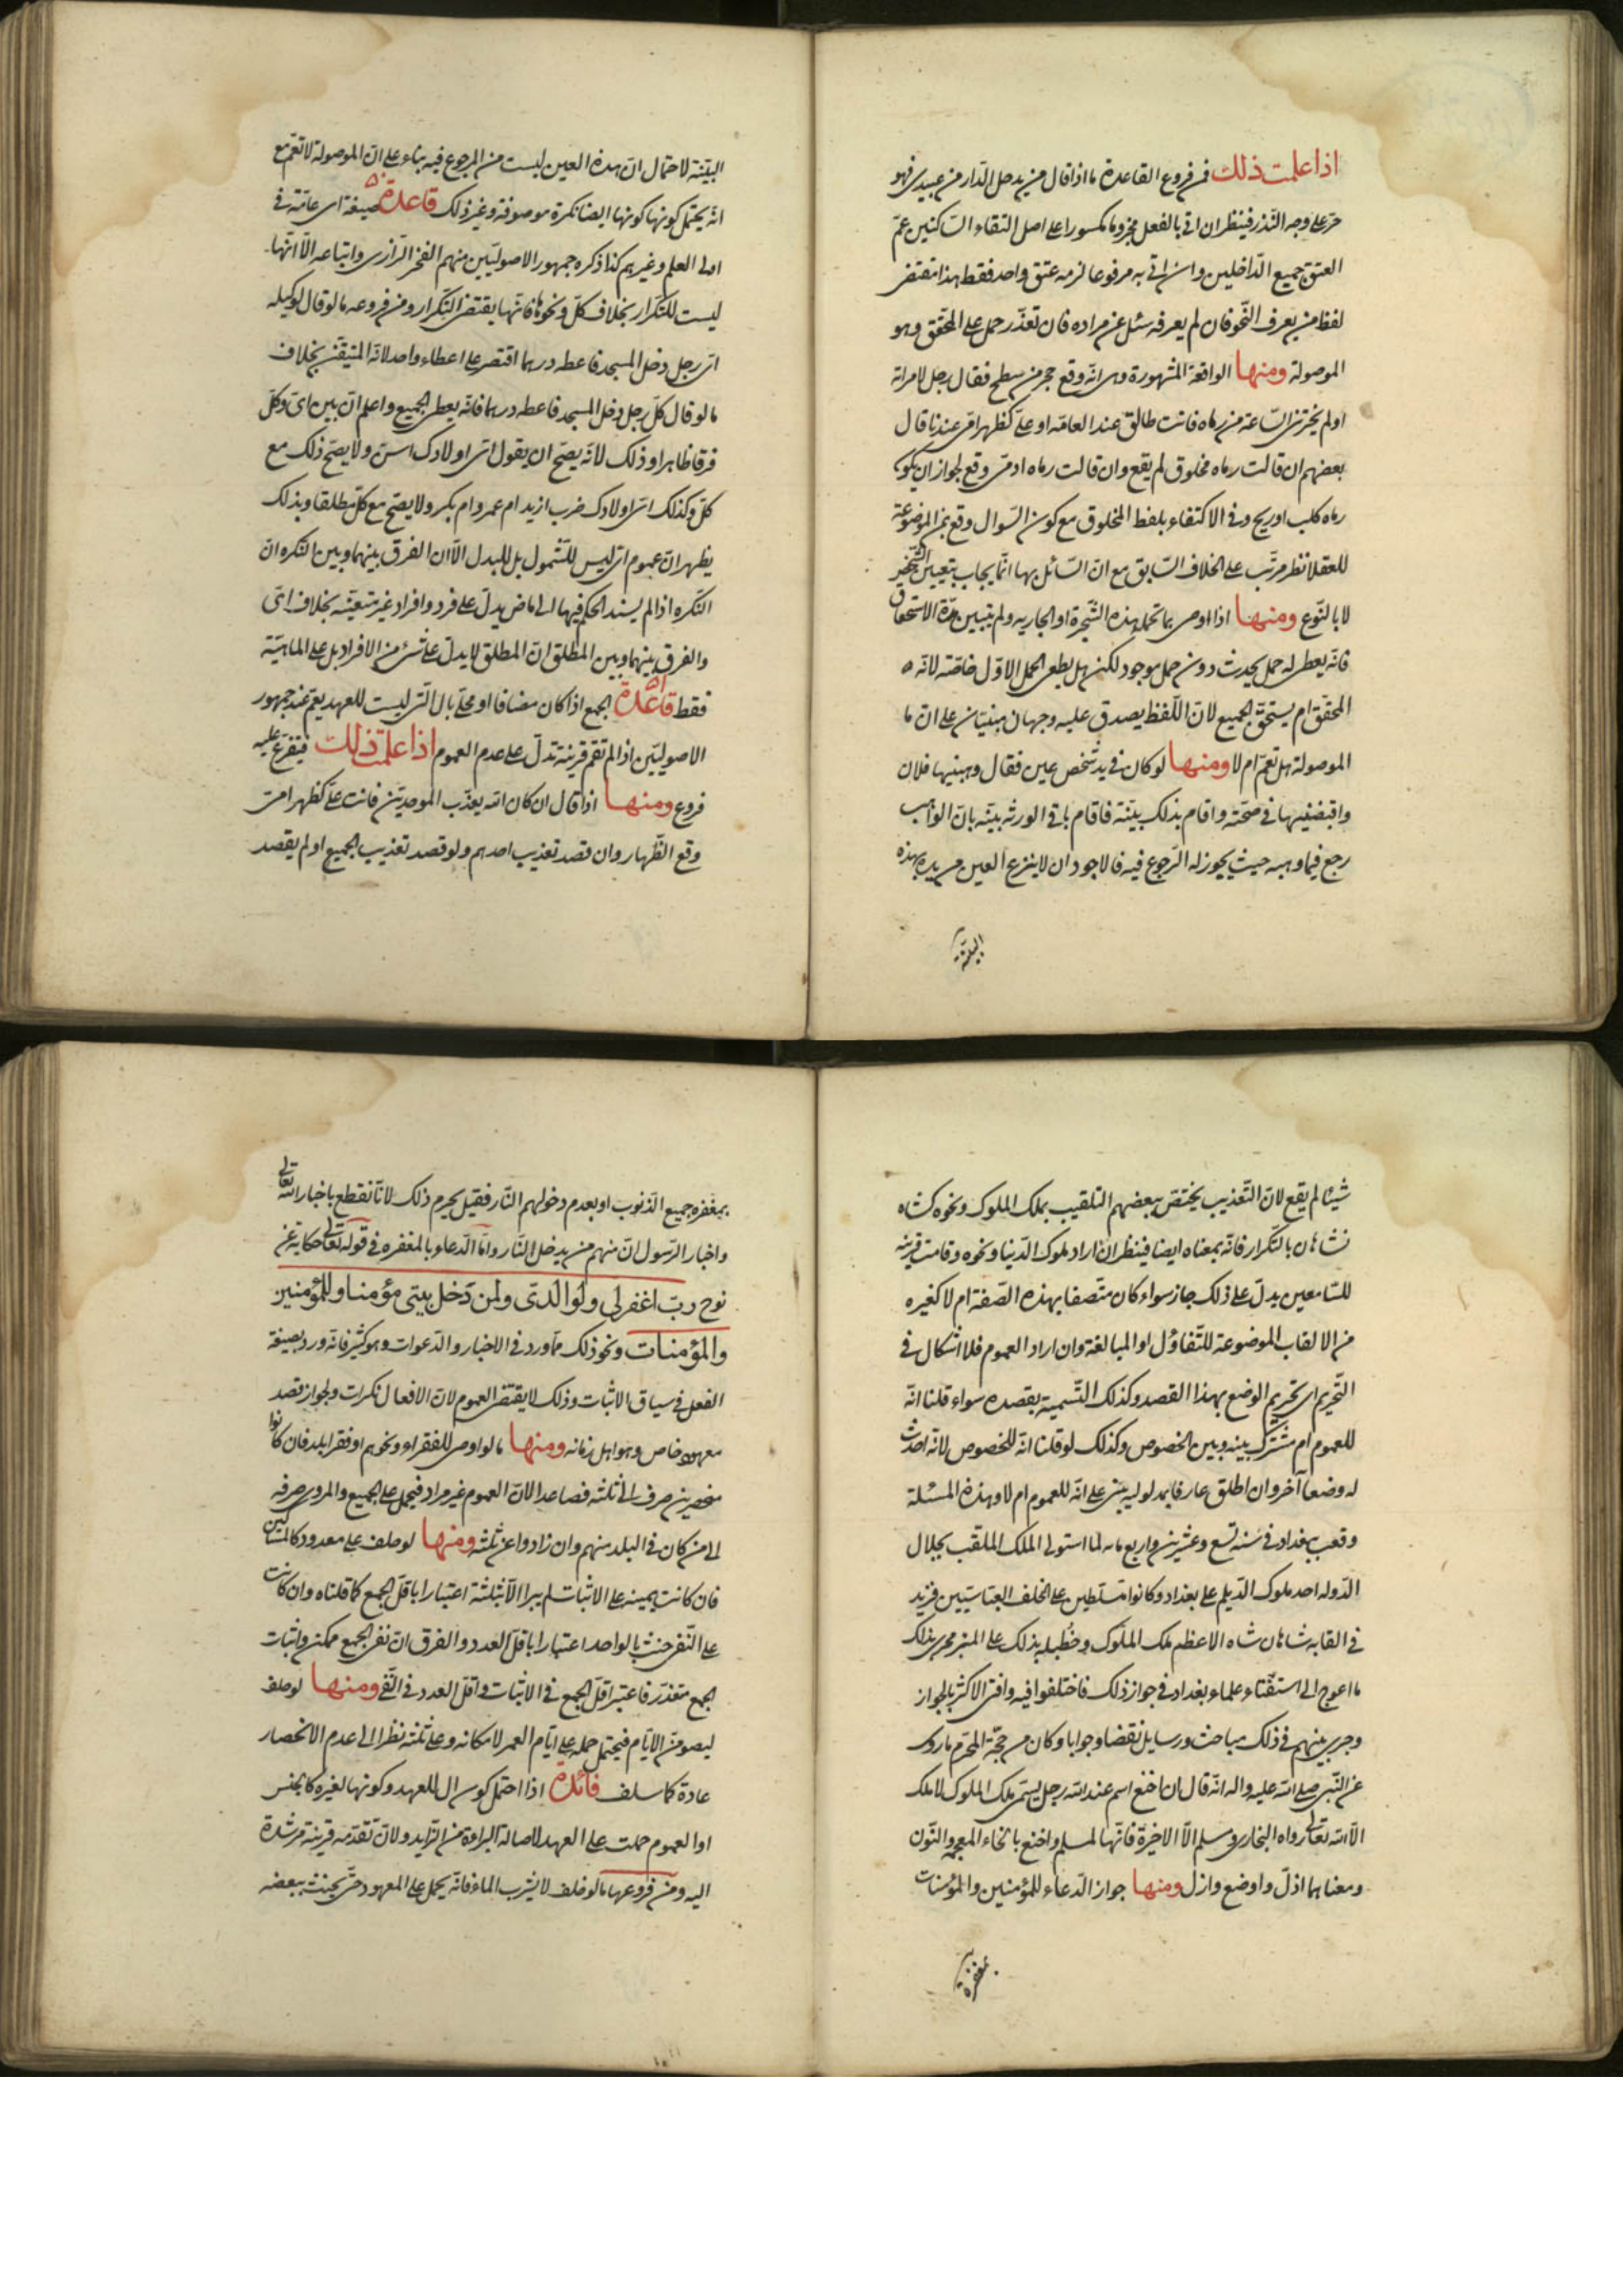 اذا علمت ذلك فمن فروع القاعدة ما اذا قال من يدخل الدار من عبيدى فهو
حر على وجه النذر فينظر ان اتى بالفعل مجزوما مكسورا على اصل التقاء الساكنين عم
العتق جميع الداخلين وان اتى به مرفوعا لزمه عتق واحد فقط هذا مقتضى
لفظ من يعرف النحو فان لم يعرفه سئل عن مراده فان تعذر حمل على المحقق وهو
الموصولة ومنها الواقعة المشهورة وهى انه وقع حجر من سطح فقال رجل لامراته
ان لم تخبرينى الساعة من رماه فانت طالق عند العامه او على كظهر امى عندنا قال
بعضهم ان قالت رماه مخلوق لم يقع وان قالت رماه ادمى وقع لجواز ان يكون
رماه كلب او ريح وفى الاكتفاء بلفظ المخلوق مع كون السوال وقع بمن الموضوعة
للعقلا نظر مرتب على الخلاف السابق مع ان السائل بها انما يجاب بتعيين الشخص
لا بالنوع ومنها اذا اوصى بما تحمله هذه الشجرة او الجاريه ولم يتبين مدة الاستحقاق
فانه يعطى له حمل يحدث دون حمل موجود لكن هل يعطى الحمل الاول خاصة لانه
المحقق ام يستحق الجميع لان اللفظ يصدق عليه وجهان مبنيان على ان ما
الموصولة هل تعم ام لا ومنها لو كان فى يد شخص عين فقال وهبنيها فلان
واقبضنيها فى صحته واقام بذلك بينة فاقام باقى الورثه بينه بان الواهب
رجع فيما وهبه حيث يجوز له الرجوع فيه فالاجود ان لا ينزع العين من يده بهذه
البينة
البينة لاحتمال ان هذه العين ليست من المرجوع فيه بناء على ان الموصولة لا تعم مع
انه يحتمل كونها كونها ايضا نكرة موصوفة وغير ذلك قاعدة صيغة اى عامة فى
اولى العلم وغيرهم كذا ذكره جمهور الاصوليين منهم الفخر الرازى واتباعه الا انها
ليست للتكرار بخلاف كل ونحوها فانها يقتضى التكرار ومن فروعه ما لو قال لوكيله
اى رجل دخل المسجد فاعطه درهما اقتصر على اعطاء واحد لانه المتيقن بخلاف
ما لو قال كل رجل دخل المسجد فاعطه درهما فانه يعطى الجميع واعلم ان بين اى وكل
فرقا ظاهرا وذلك لانه يصح ان يقول اى اولادك اسن ولا يصح ذلك مع
كل وكذلك اى اولادك ضرب ازيد ام عمرو ام بكر ولا يصح مع كل مطلقا وبذلك
يظهر ان عموم اى ليس للشمول بل للبدل الا ان الفرق بينهما وبين النكره ان
النكره اذا لم يسند الحكم فيها الى ماض يدل على فرد وافراد غير متعينه بخلاف اى
والفرق بينهما وبين المطلق ان المطلق لا يدل على شئ من الافراد بل على الماهية
فقط قاعدة الجمع اذا كان مضافا او محلى بال التى ليست للعهد يعم عند جمهور
الاصوليين اذا لم تقم قرينة تدل على عدم العموم اذا علمت ذلك فيتفرع عليه
فروع ومنها اذا قال ان كان الله يعذب الموحدين فانت على كظهر امى
وقع الظهار وان قصد تعذيب احدهم ولو قصد تعذيب الجميع او لم يقصد
شيئا لم يقع لان التعذيب يختص ببعضهم التلقيب بملك الملوك ونحوه كشاه
شاهان بالتكرار فانه بمعناه ايضا فينظر ان اراد ملوك الدنيا ونحوه وقامت قرينه
للسامعين يدل على ذلك جاز سواء كان متصفا بهذه الصفة ام لا كغيره
من الالقاب الموضوعة للتفاؤل او المبالغة وان اراد العموم فلا اشكال فى
التحريم اى تحريم الوضع بهذا القصد وكذلك التسمية بقصده سواء قلنا انه
للعموم ام مشترك بينه وبين الخصوص وكذلك لو قلنا انه للخصوص لانه احدث
له وضعا آخر وان اطلق عارفا بمدلوله يبنى على انه للعموم ام لا وهذه المسئلة
وقعت ببغداد فى سنه تسع وعشرين واربع ماه لما استولى الملك الملقب بجلال
الدوله احد ملوك الديلم على بغداد وكانوا متسلطين على الخلف العباسيين فزيد
فى القابه شاهان شاه الاعظم ملك الملوك وخطب له بذلك على المنبر فجرى بذلك
ما احوج الى استفتاء علماء بغداد فى جواز ذلك فاختلفوا فيه وافتى الاكثر بالجواز
وجرى بينهم فى ذلك مباحث ورسايل نقضا وجوابا وكان من حجة المحرم ما روى
عن النبى صلى الله عليه واله انه قال ان اخنع اسم عند الله رجل يسمى ملك الملوك لا ملك
الا الله تعالى رواه البخارى ومسلم الا الاخيرة فانها لمسلم واخنع بالخاء المعجمه والنون
ومعناهما اذل واوضع وارذل ومنها جواز الدعاء للمؤمنين والمؤمنات
بمغفرة
بمغفره جميع الذنوب او بعدم دخولهم النار فقيل يحرم ذلك لانا نقطع باخبار الله تعالى
واخبار الرسول ان منهم من يدخل النار واما الدعاء بالمغفره فى قوله تعالى حكاية عن
نوح رب اغفر لى ولوالدى ولمن دخل بيتى مؤمنا وللمؤمنين
والمؤمنات ونحو ذلك مما ورد فى الاخبار والدعوات وهو كثير فانه ورد بصيغة
الفعل فى سياق الاثبات وذلك لا يقتضى العموم لان الافعال نكرات ولجواز قصد
معهود خاص وهو اهل زمانه ومنها ما لو اوصى للفقراء ونحوهم او فقرا بلد فان كانوا
منحصرين صرف الى ثلثه فصاعدا لان العموم غير مراد فيحمل على الجميع والمروى صرفه
الى من كان فى البلد منهم وان زادوا عن ثلثه ومنها لو حلف على معدود كالمساكين
فان كانت يمينه على الاثبات لم يبر الا بثلثة اعتبارا باقل الجمع كما قلناه وان كانت
على النفى حنث بالواحد اعتبارا باقل العدد والفرق ان نفى الجمع ممكن واثبات
الجمع متعذر فاعتبر اقل الجمع فى الاثبات واقل العدد فى النفى ومنها لو حلف
ليصومن الايام فيحتمل حمله على ايام العمر لامكانه وعلى ثلثه نظرا الى عدم الانحصار
عادة كما سلف فائدة اذا احتمل كون ال للعهد وكونها لغيره كالجنس
او العموم حملت على العهد لاصالة البراءة من الزايد ولان تقدمه قرينة مرشدة
اليه ومن فروعها ما لو حلف لا يشرب الماء فانه يحمل على المعهود حتى يحنث ببعضه